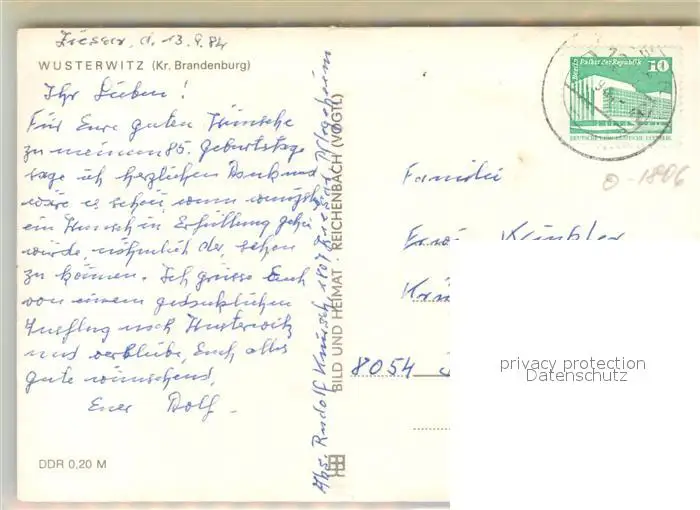 Ziesar, d. 13.9.84
WUSTERWITZ (Kr. Brandenburg)
Ihr Lieben!
Für Eure guten Wünsche
zu meinem 85. Geburtstage
sage ich herzlichen Dank und
wäre es schön wenn wenigstens
ein Wunsch in Erfüllung gehen
würde, nähmlich der, sehen
zu können. Ich grüsse Euch
von einem gedanklichen
Ausflug nach Wusterwitz
und verbleibe, Euch alles
gute wünschend,
Euer Dolf.
DDR 0,20 M
Abs. Rudolf 1807 Ziesar Pflegeheim
BILD UND HEIMAT · REICHENBACH (VOGTL)
Berlin, Palast der Republik
10
DEUTSCHE DEMOKRATISCHE REPUBLIK
0-1806
Familie
8054
privacy protection
Datenschutz